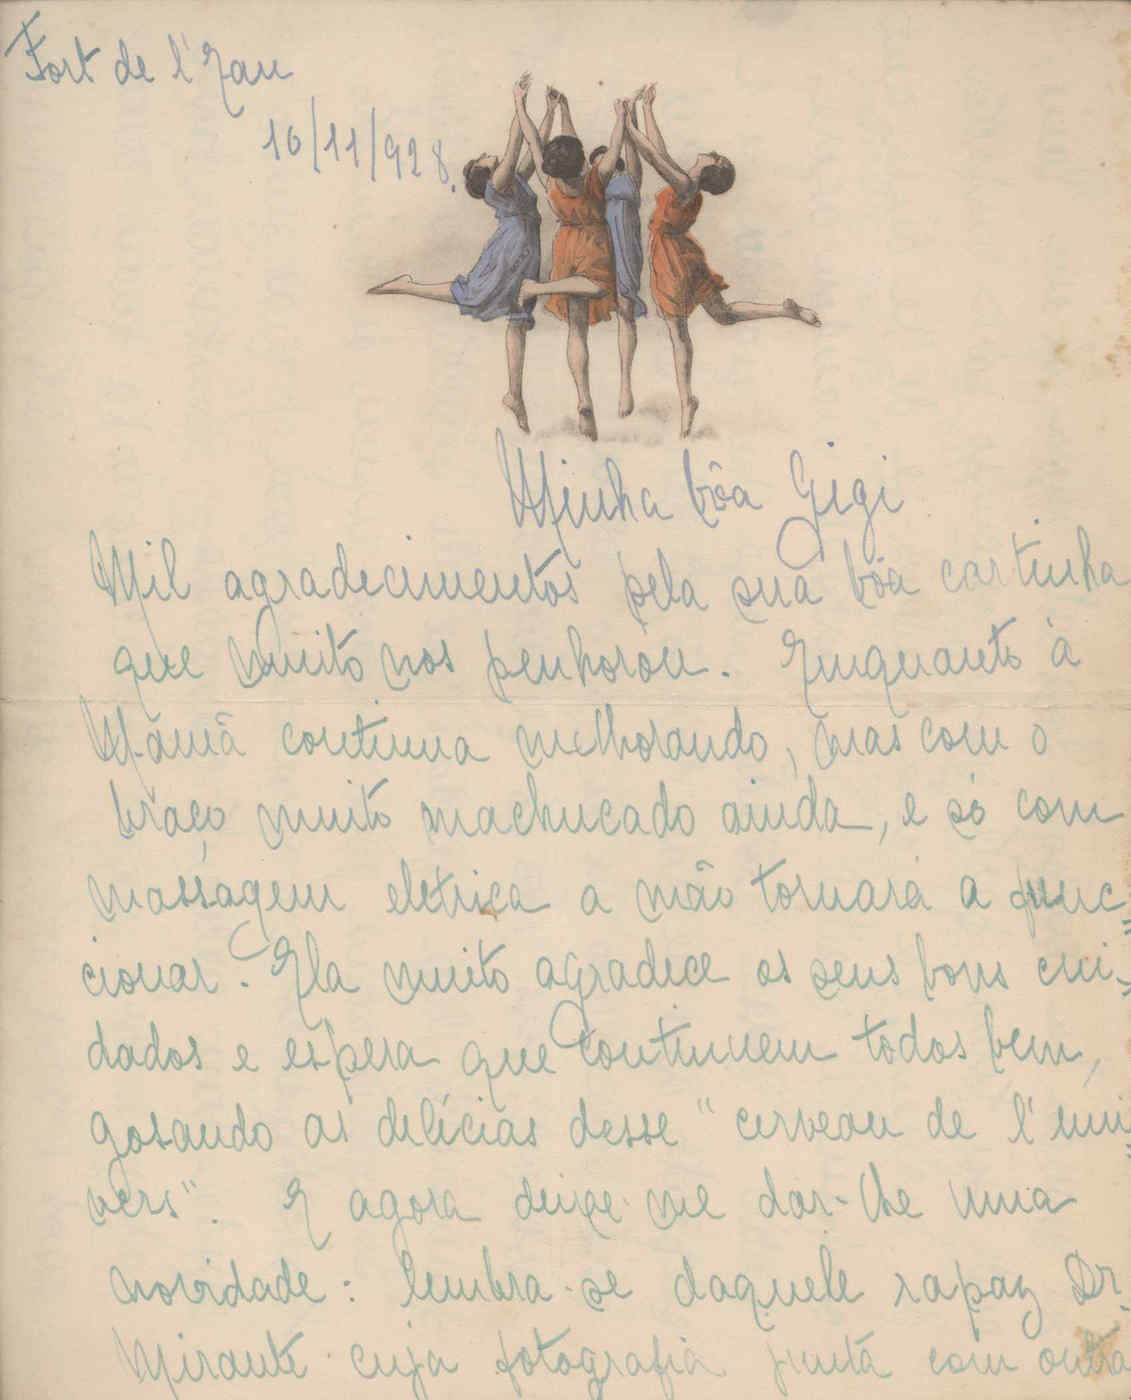 Fort de l'Eau
16/11/928.
Minha bôa Gigi
Mil agradecimentos pela sua bôa cartinha
que muito nos penhorou. Emquanto à
Mamã continua melhorando, mas com o
braço muito machucado ainda, e só com
massagem eletrica a mão tornará a func=
cionar. Ela muito agradece os seus bons cui=
dados e espera que continuem todos bem,
gosando as delícias desse "cerveau de l'uni=
vers". E agora deixe-me dar-lhe uma
novidade: lembra-se daquele rapaz Dr.
Mirante cuja fotografia junta com outra